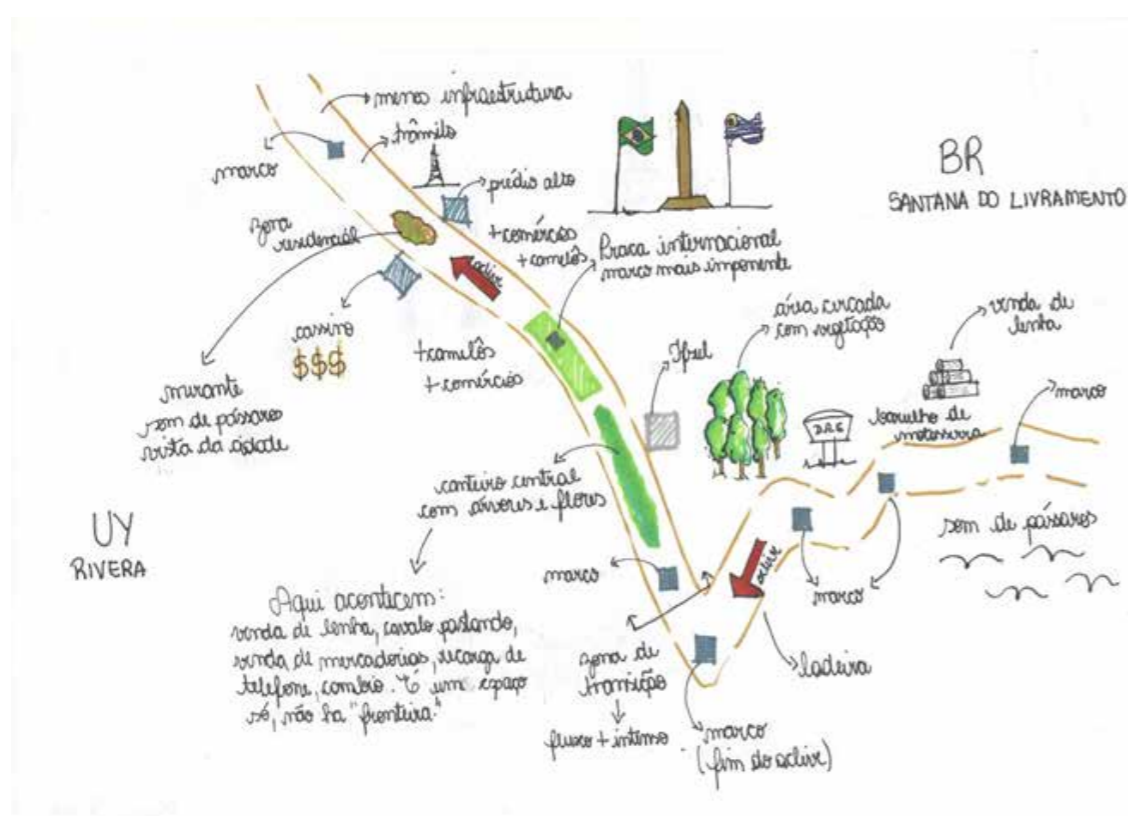 menos infraestrutura
trânsito
marco
prédio alto
zona
residencial
+ comércios
+ camelôs
aclive
Praça internacional
marco mais imponente
BR
SANTANA DO LIVRAMENTO
cassino
$$$
+ camelôs
+ comércios
mirante
som de pássaros
vista da cidade
área cercada
com vegetação
venda de
lenha
Ifsul
D.A.E
barulho de
motosserra
marco
canteiro central
com árvores e flores
UY
RIVERA
som de pássaros
marco
aclive
marco
Aqui acontecem:
venda de lenha, cavalo pastando,
venda de mercadorias, recarga de
telefone, cambio. É um espaço
só, não ha "fronteira."
zona de
transição
fluxo + intenso
ladeira
marco
(fim do aclive)